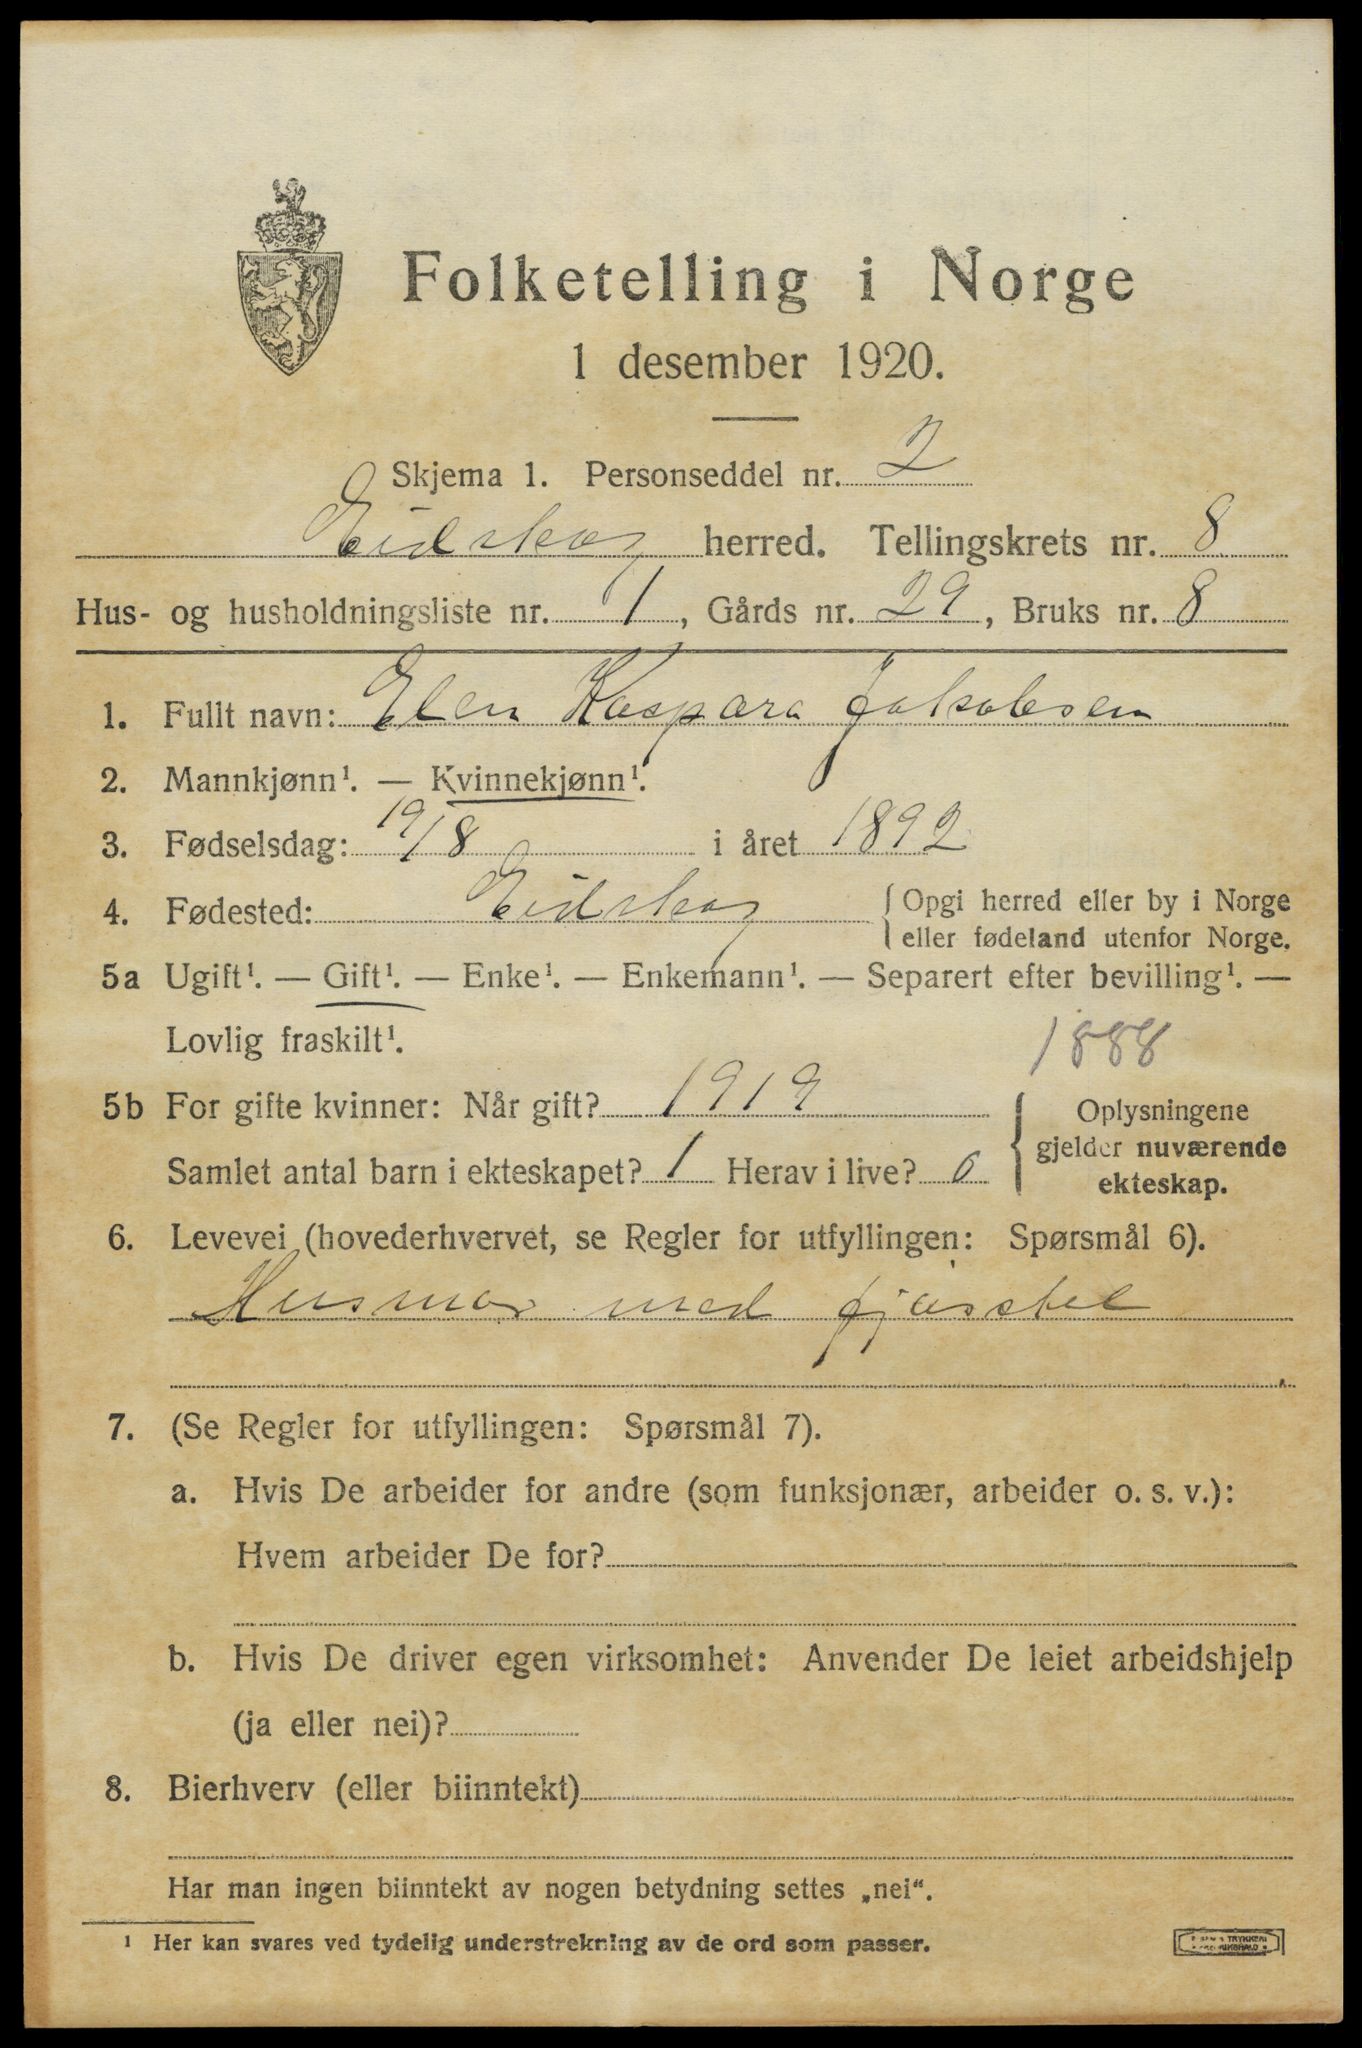 Folketelling i Norge
1 desember 1920.
Skjema 1. Personseddel nr. 2
Eidskog herred. Tellingskrets nr. 8
Hus- og husholdningsliste nr. 1, Gårds nr. 29, Bruks nr. 8
1. Fullt navn: Elen Kaspara Jakobsen
2. Mannkjønn¹. — Kvinnekjønn¹.
3. Fødselsdag: 19/8 i året 1892
4. Fødested: Eidskog { Opgi herred eller by i Norge
eller fødeland utenfor Norge.
5a Ugift¹. — Gift¹. — Enke¹. — Enkemann¹. — Separert efter bevilling¹. —
Lovlig fraskilt¹.
1888
5b For gifte kvinner: Når gift? 1919
Samlet antal barn i ekteskapet? 1 Herav i live? 0
Oplysningene
gjelder nuværende
ekteskap.
6. Levevei (hovederhvervet, se Regler for utfyllingen: Spørsmål 6).
Husmor med fjøsstel
7. (Se Regler for utfyllingen: Spørsmål 7).
a. Hvis De arbeider for andre (som funksjonær, arbeider o. s. v.):
Hvem arbeider De for?
b. Hvis De driver egen virksomhet: Anvender De leiet arbeidshjelp
(ja eller nei)?
8. Bierhverv (eller biinntekt)
Har man ingen biinntekt av nogen betydning settes „nei“.
¹ Her kan svares ved tydelig understrekning av de ord som passer.
TRYKKERI